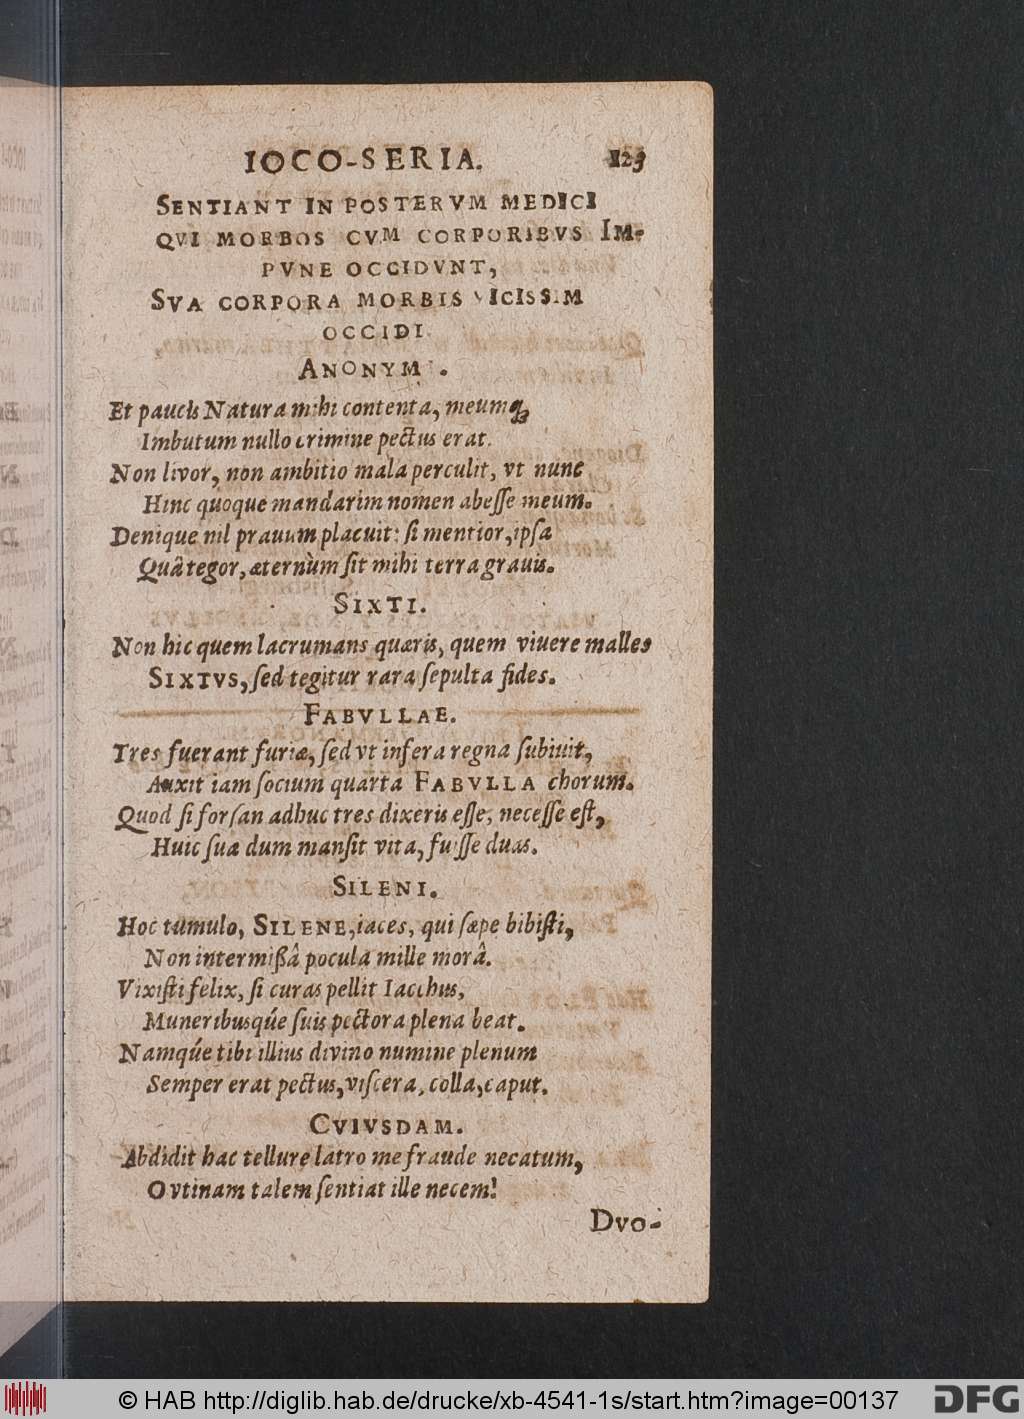 IOCO-SERIA. 123
SENTIANT IN POSTERVM MEDICI
QVI MORBOS CVM CORPORIBVS IM-
PVNE OCCIDVNT,
SVA CORPORA MORBIS VICISSIM
OCCIDI.
ANONYMI.
Et paucis Natura mihi contenta, meumq́;
Imbutum nullo crimine pectus erat.
Non livor, non ambitio mala perculit, vt nunc
Hinc quoque mandarim nomen abeſſe meum.
Denique nil prauum placuit: ſi mentior, ipſa
Quâ tegor, æternùm ſit mihi terra grauis.
SIXTI.
Non hic quem lacrumans quæris, quem viuere malles
SIXTVS, ſed tegitur rara ſepulta fides.
FABVLLAE.
Tres fuerant furiæ, ſed vt infera regna ſubiuit,
Auxit iam ſocium quarta FABVLLA chorum.
Quod ſi forſan adhuc tres dixeris eſſe, neceſſe eſt,
Huic ſuæ dum manſit vita, fuiſſe duas.
SILENI.
Hoc tumulo, SILENE, iaces, qui ſæpe bibiſti,
Non intermiſſâ pocula mille morâ.
Vixiſti felix, ſi curas pellit Iacchus,
Muneribusq́ue ſuis pectora plena beat.
Namq́ue tibi illius divino numine plenum
Semper erat pectus, viſcera, colla, caput.
CVIVSDAM.
Abdidit hac tellure latro me fraude necatum,
O vtinam talem ſentiat ille necem!
DVO-
© HAB http://diglib.hab.de/drucke/xb-4541-1s/start.htm?image=00137
DFG